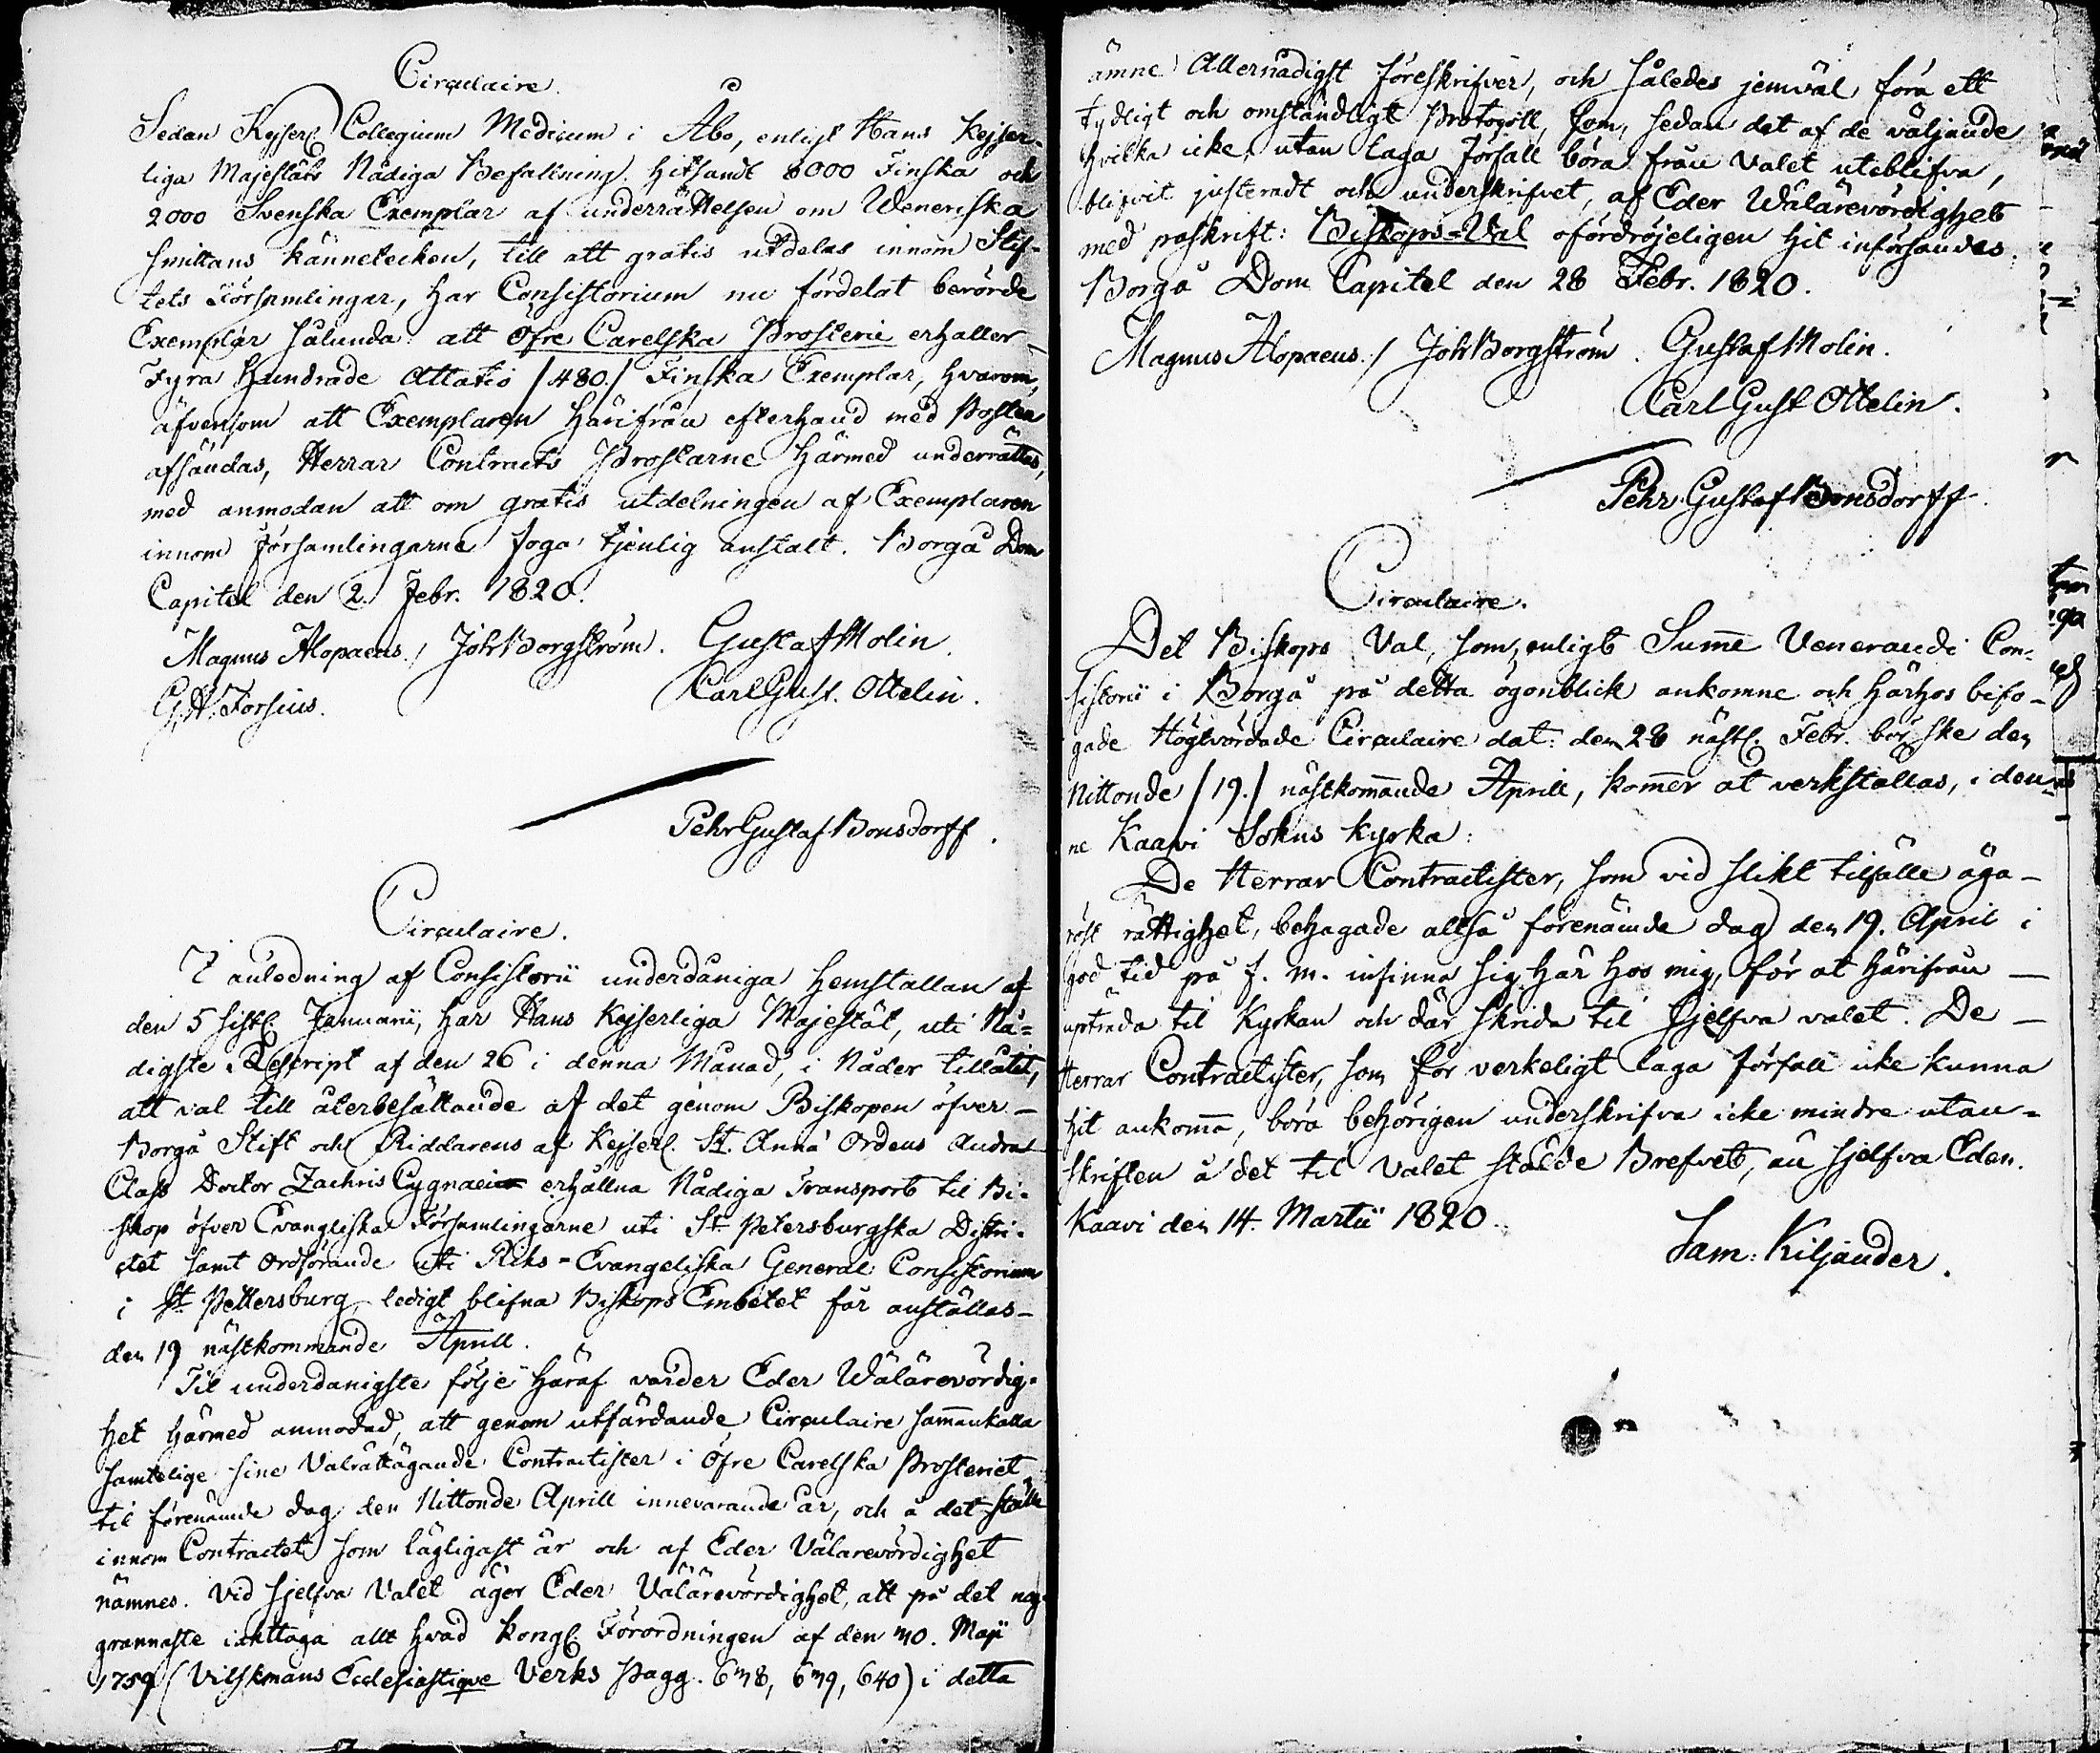 Circulaire.
Sedan Kejserl. Collegium Medicum i Åbo, enligt Hans Kejser-
liga Majestäts Nådiga Befallning hitsandt 8000 Finska och
2000 Svenska Exemplar af underrättelsen om Weneriska
smittans kännetecken, till att gratis utdelas innom Stif-
tets Församlingar, har Consistorium nu fördelat berörde
Exemplar sålunda att Öfre Carelska Prosterie erhaller
Fyra Hundrade Attatio /480./ Finska Exemplar, hvarom,
äfvensom att Exemplaren härifrån efterhand med Posten
afsändas, Herrar Contracts Prostarne härmed underrättas,
med anmodan att om gratis utdelningen af Exemplaren
innom Församlingarne foga tjenlig anstalt. Borgå Dom
Capitel den 2. Febr. 1820.
Magnus Alopaeus./ Joh Borgström. Gustaf Molin.
G. W. Forsius. Carl Gust. Ottelin.
Pehr Gustaf Bonsdorff.
Circulaire.
I anledning af Consistorii underdåniga hemstallan af
den 5 sistl. Januarii, har Hans Kejserliga Majestät, uti Nå-
digste Rescript af den 26 i denna Månad, i Nåder tillåtit,
att val till återbesättande af det genom Biskopen öfver
Borgå Stift och Riddarens af Kejserl. St. Anna Ordens Andra
Class Doctor Zachris Cygnaei erhållna Nådiga Transport til Bi-
skop öfver Evangliska Församlingarne uti St. Petersburgska Distri-
ctet samt Ordförande uti Riks-Evangeliska General Consistorium
i St. Pettersburg ledigt blifna Biskops Embetet får anställas
den 19 nästkommande Aprill.
Til underdanigste följe häraf varder Eder Wälärevördig-
het härmed anmodad, att genom utfärdande Circulaire sammankalla
samtelige sine Valrättägande Contractister i Öfre Carelska Prosteriet
til förenämde dag den Nittonde Aprill innevarande år, och å det ställe
innom Contractet som lägligast är och af Eder Välarevördighet
nämnes. Vid sjelfva Valet äger Eder Välärevördighet, att på det nog-
grannaste iakttaga allt hvad Kongl. Förordningen af den 30. Maji
1759 (Vilskmans Ecclesiastique Verks pagg. 638, 639, 640) i detta
ämne Allernådigst föreskrifver, och således jemväl föra ett
tydligt och omständligt Protocoll, som, sedan det af de väljande
hvilka icke, utan laga förfall böra från Valet uteblifva,
blifvit justeradt och underskrifvet, af Eder Wälärevördighet
med påskrift: Biskops-Val ofördröjeligen hit införsändes.
Borgå Dom Capitel den 28 Febr. 1820.
Magnus Alopaeus./ Joh Borgström. Gustaf Molin.
Carl Gust Ottelin.
Pehr Gustaf Bonsdorff.
Circulaire.
Det Biskops Val, som, enligt Sum̄e Venerandi Con-
sistorii i Borgå på detta ögonblick ankomne och härhos bifo-
gade Högtvördade Circulaire dat: den 28 nästl. Febr. bör ske den
Nittonde /19./ nästkom̄ande Aprill, kom̄er at verkställas, i den-
ne Kaavi Sokns kyrka:
De Herrar Contractister, som vid slikt tilfälle äga
röst rättighet, behagade alltså förenämde dag den 19. April i
god tid på f. m. infinna sig här hos mig, för at härifrån
upträda til Kyrkan och där skrida til sjelfva valet. De
Herrar Contractister, som för verkeligt laga förfall icke kunna
hit ankom̄a, böra behörigen underskrifva icke mindre utan-
skriften å det til Valet stälde Brefvet, än sjelfva Eden.
Kaavi den 14. Martii 1820.
Sam: Kiljander.